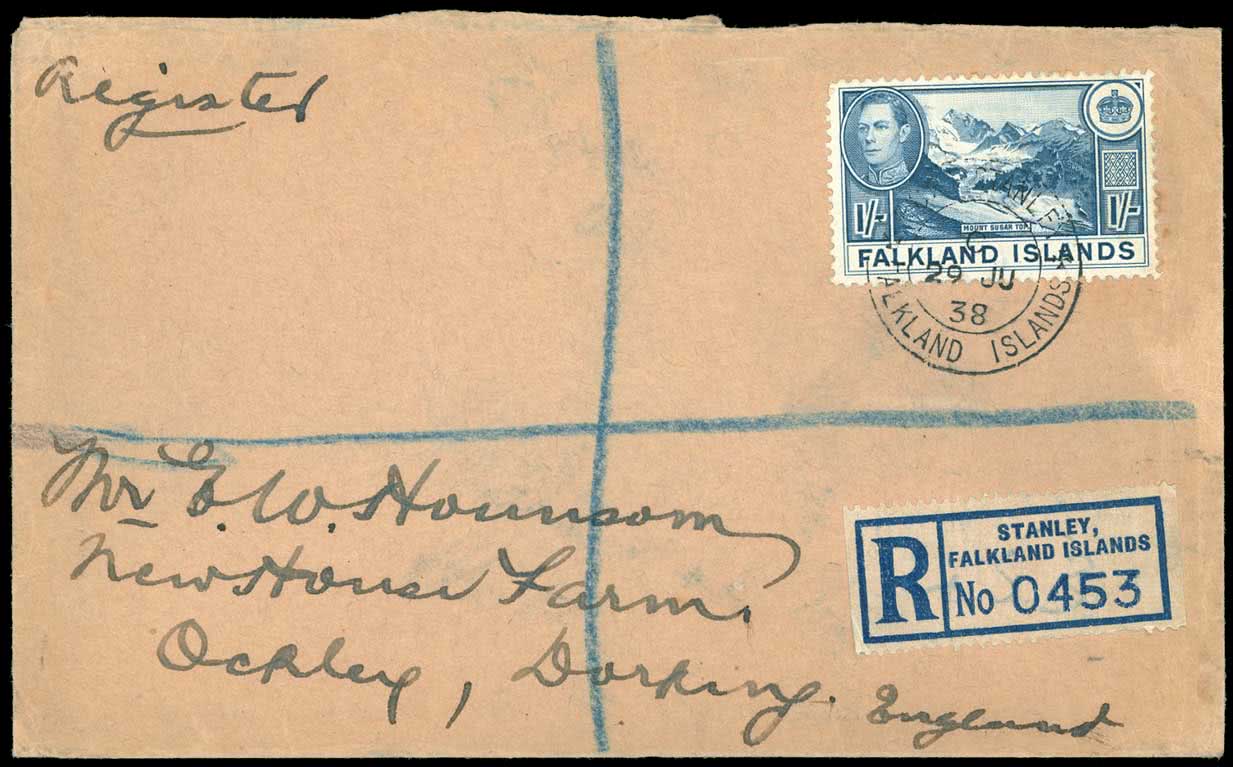 Register
1/- 1/-
MOUNT SUGAR TOP
FALKLAND ISLANDS
STANLEY
C
29 JU
38
FALKLAND ISLANDS
Mr E. W. Hounsom
New House Farm.
Ockley, Dorking.
England
R
STANLEY,
FALKLAND ISLANDS
No 0453